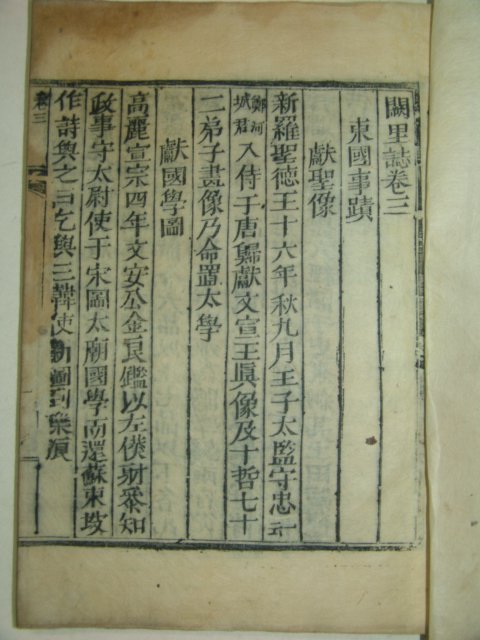 闕里誌卷三
東國事蹟
獻聖像
新羅聖德王十六年秋九月王子太監守忠
城君入侍于唐歸獻文宣王眞像及十哲七十
二弟子畫像乃命置太學
獻國學圖
高麗宣宗四年文安公金良鑑以左僕射叅知
政事守太尉使于宋圖太廟國學而還蘇東坡
作詩與之曰乞與三韓使 圖到樂浪
卷三